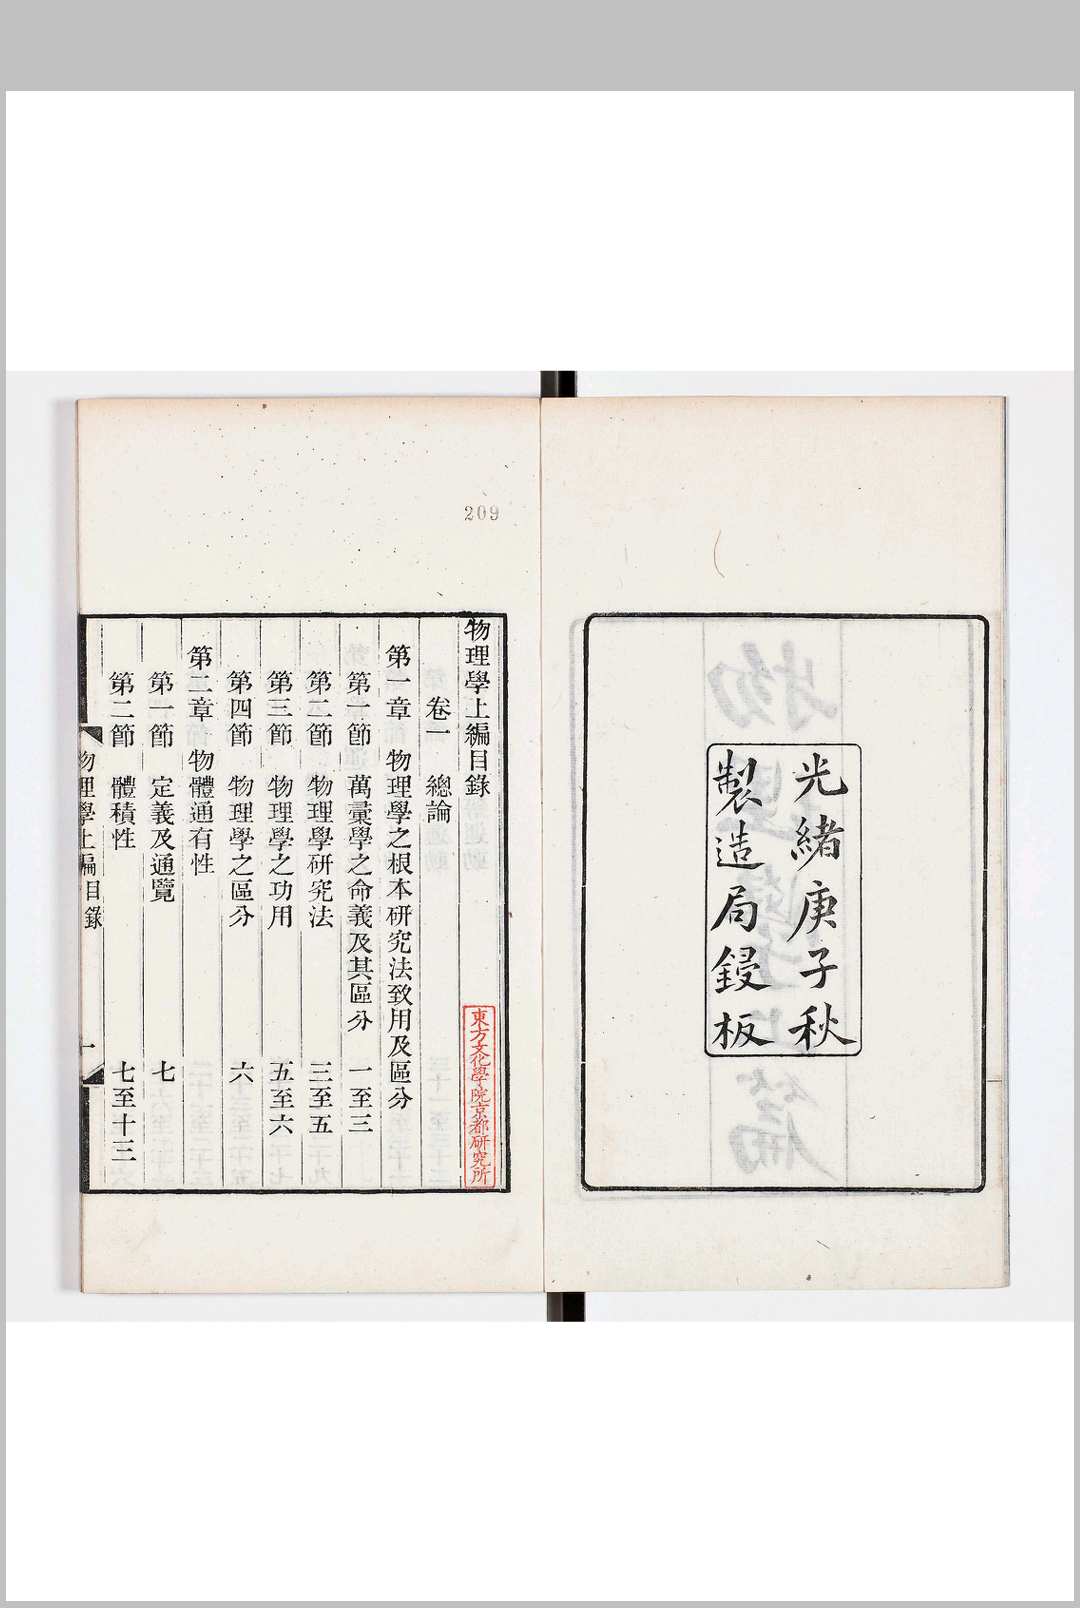 光緒庚子秋
製造局鋟板
209
物理學上編目錄
卷一 總論
第一章 物理學之根本研究法致用及區分
第一節 萬彙學之命義及其區分 一至三
第二節 物理學研究法 三至五
第三節 物理學之功用 五至六
第四節 物理學之區分 六
第二章 物體通有性
第一節 定義及通覽 七
第二節 體積性 七至十三
物理學上編目錄 一
東方文化學院京都研究所